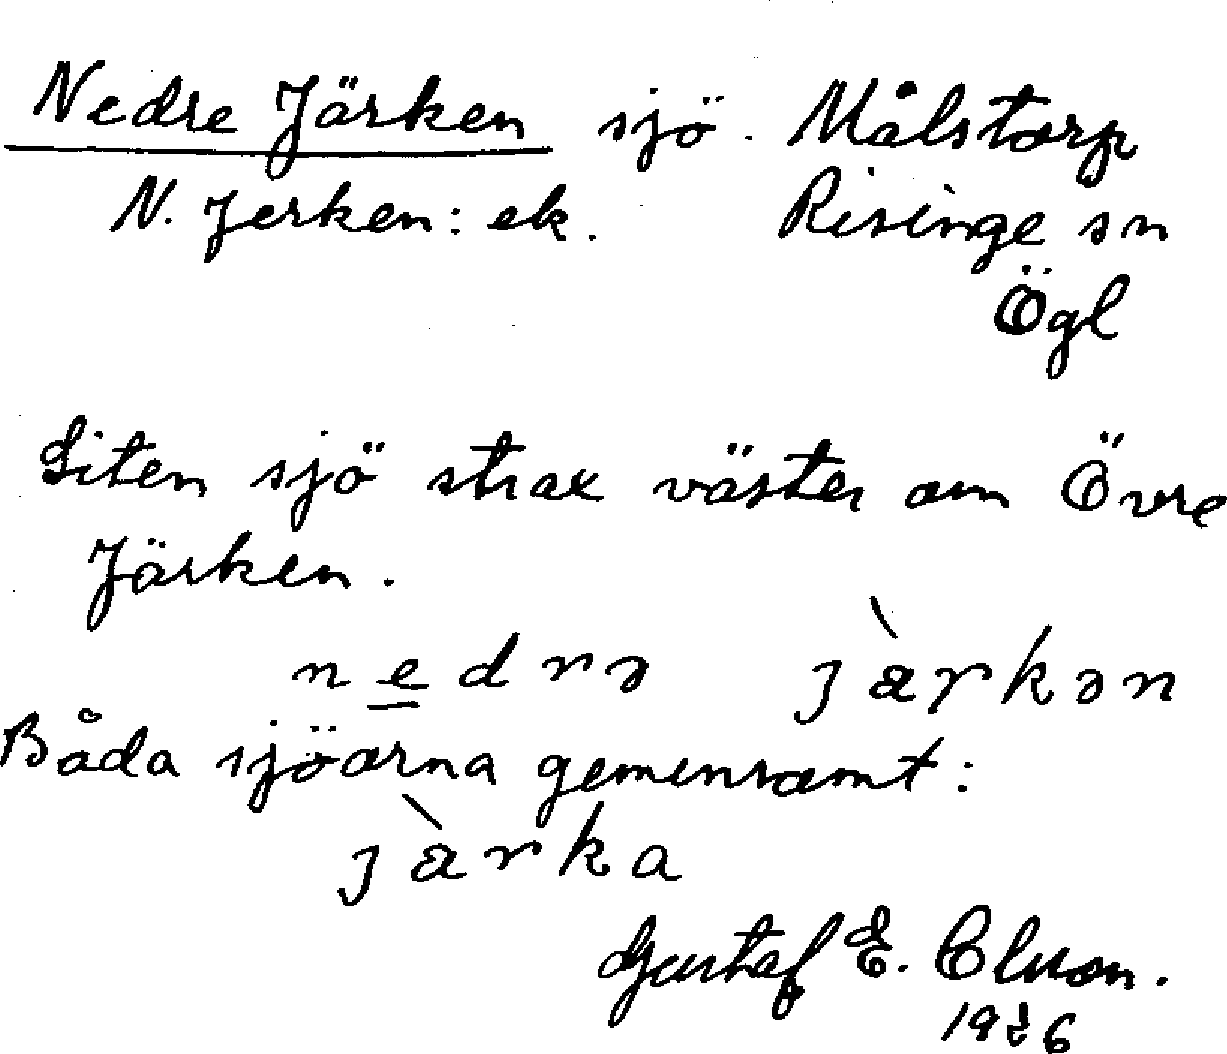 Nedre Järken sjö. Målstorp
N. Jerken: ek. Risinge sn
Ögl
Liten sjö strax väster om Övre
Järken.
nedrə jæ̀rkən
Båda sjöarna gemensamt:
jæ̀rka
Gustaf E. Clason.
1926